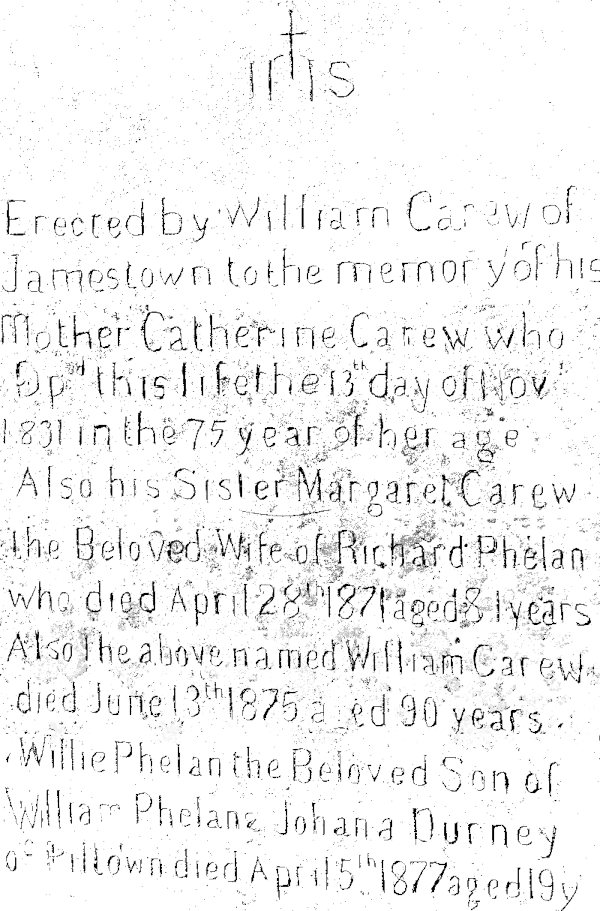 IHS
Erected by William Carew of
Jamestown to the memory of his
Mother Catherine Carew who
Dpd this life the 13th day of Nov
1831 in the 75 year of her age
Also his Sister Margaret Carew
the Beloved Wife of Richard Phelan
who died April 28th 1871 aged 81 years
Also The above named William Carew
died June 13th 1875 aged 90 years.
Willie Phelan the Beloved Son of
William Phelan & Johana Durney
of Pilltown died April 5th 1877 aged 19y